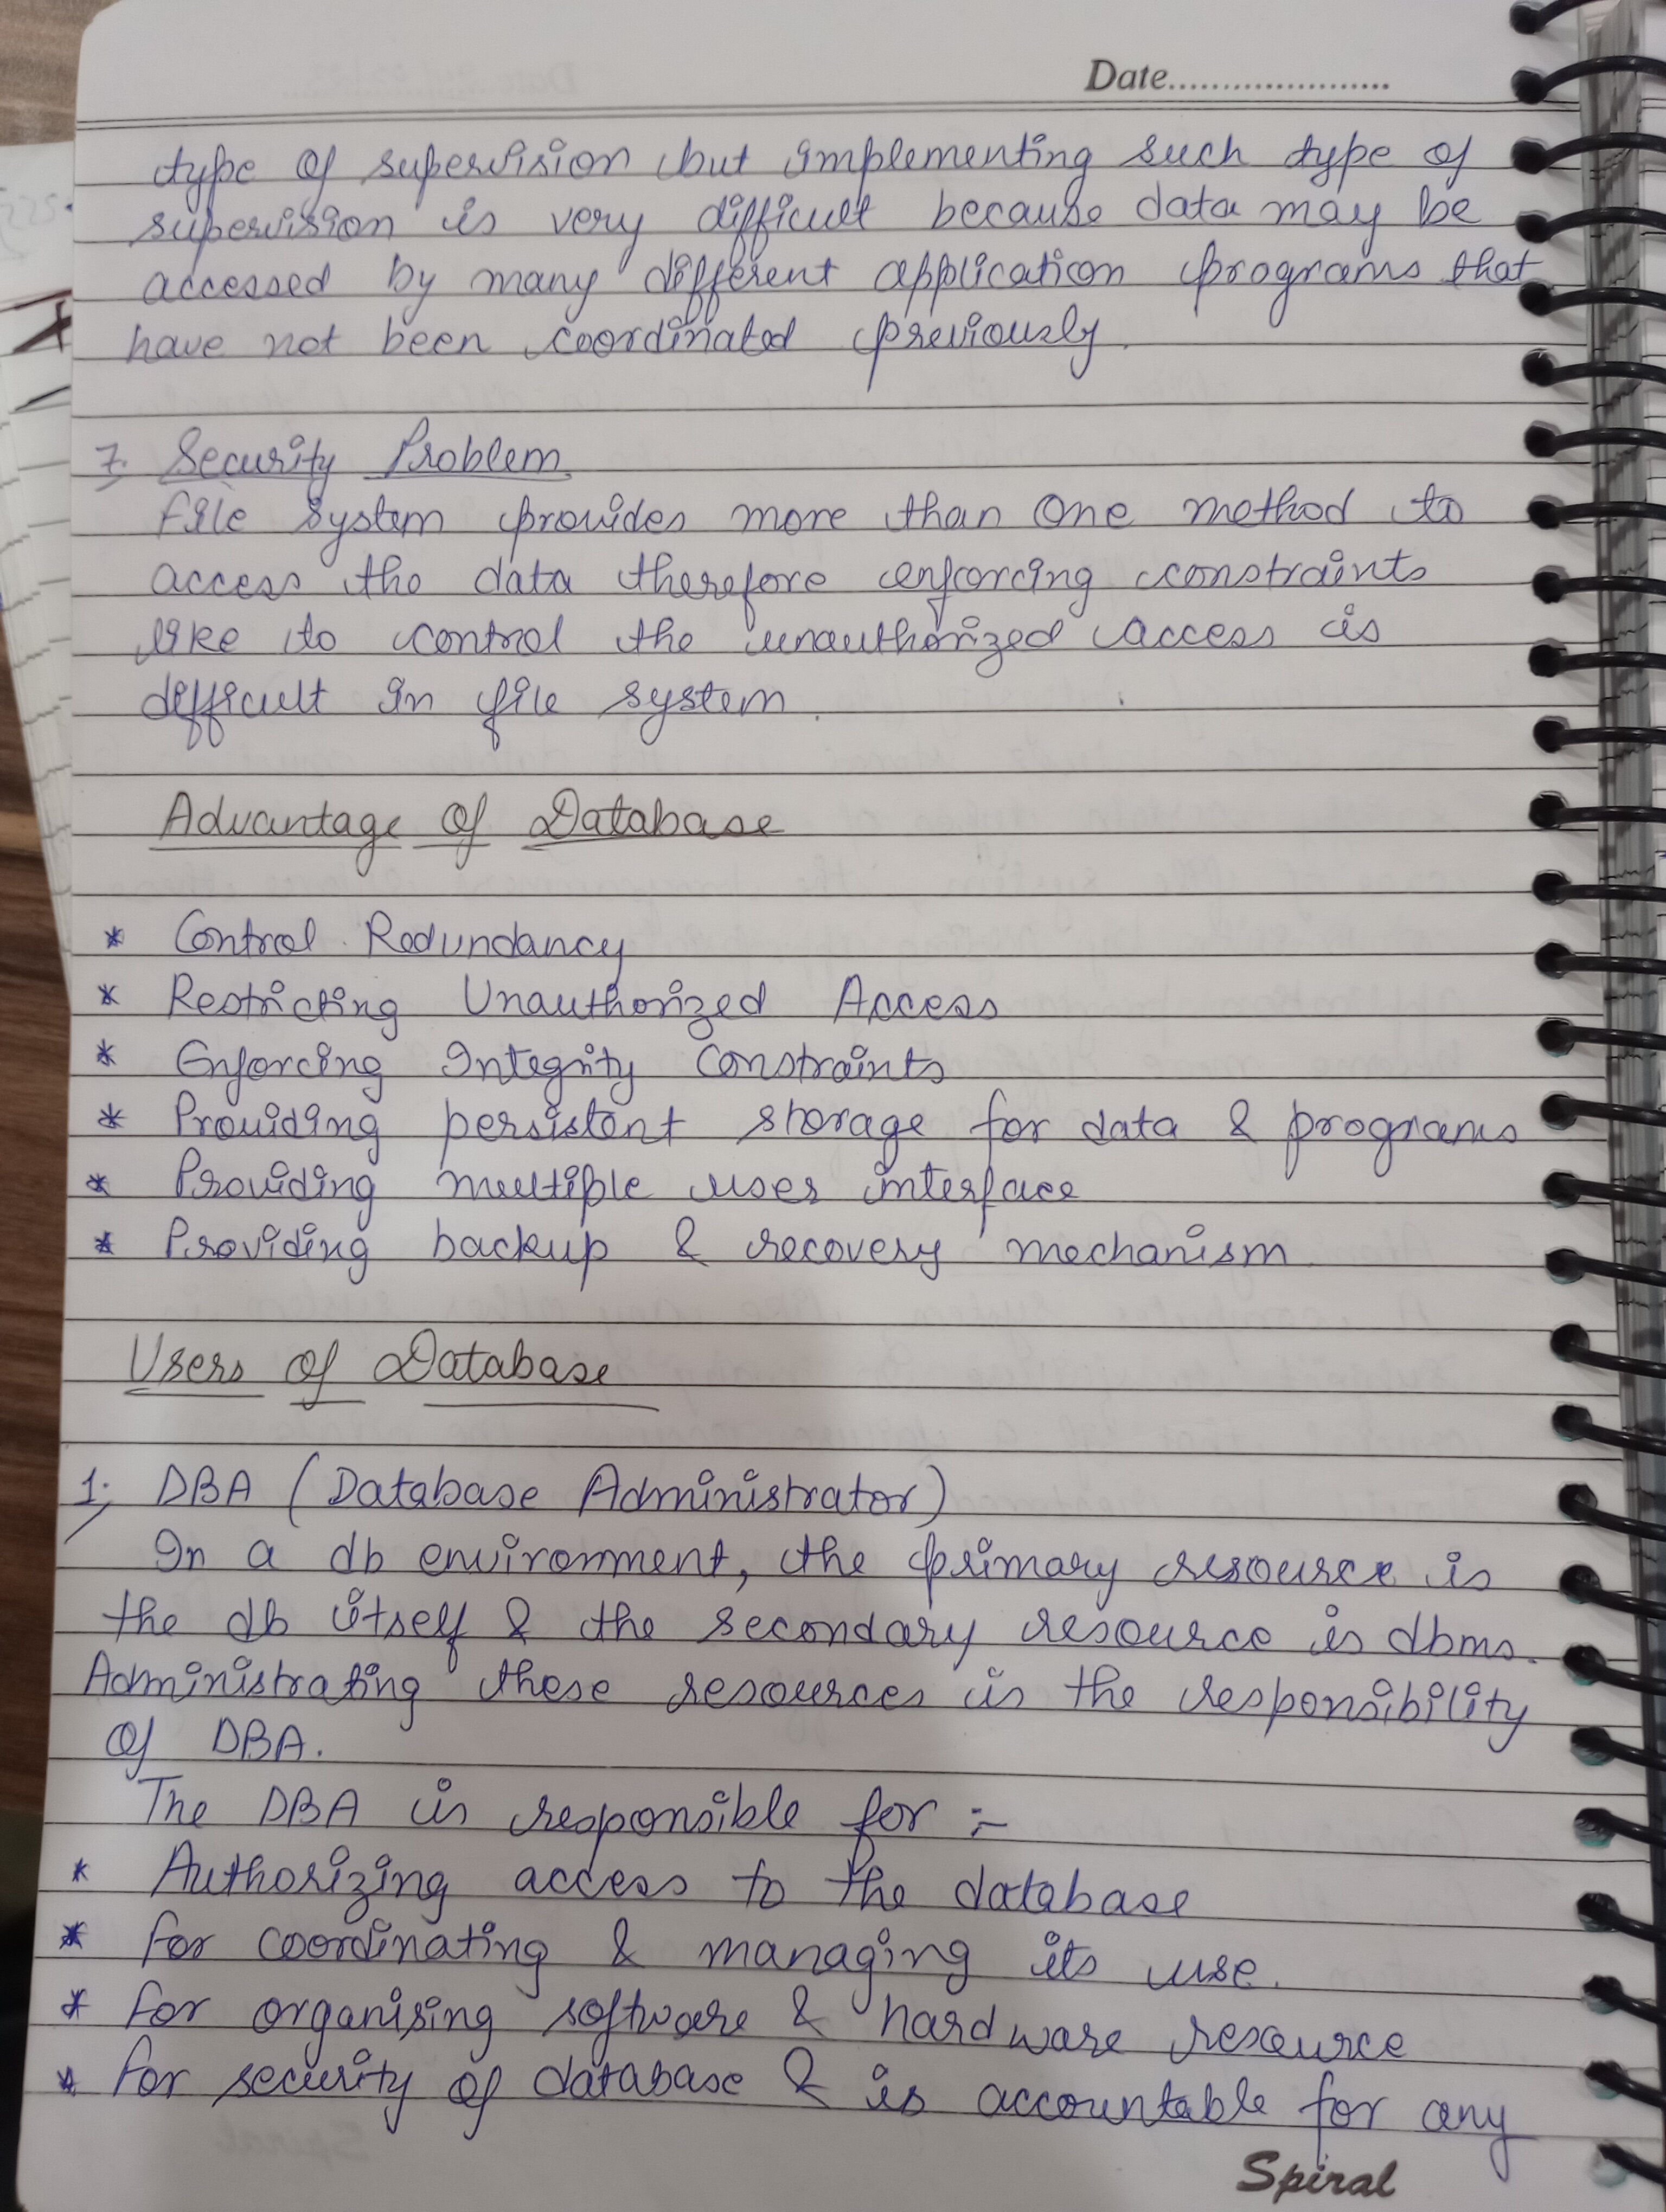 Date.....................
type of supervision but implementing such type of
supervision is very difficult because data may be
accessed by many different application programs that
have not been coordinated previously.
7. Security Problem
File system provides more than one method to
access the data therefore enforcing constraints
like to control the unauthorized access is
difficult in file system.
Advantage of Database
* Control Redundancy
* Restricting Unauthorized Access
* Enforcing Integrity Constraints
* Providing persistent storage for data & programs
* Providing multiple user interface
* Providing backup & recovery mechanism.
Users of Database
1. DBA (Database Administrator)
In a db environment, the primary resource is
the db itself & the secondary resource is dbms.
Administrating these resources is the responsibility
of DBA.
The DBA is responsible for :-
* Authorizing access to the database
* for coordinating & managing its use.
* for organising software & hardware resource
* for security of database & is accountable for any
Spiral